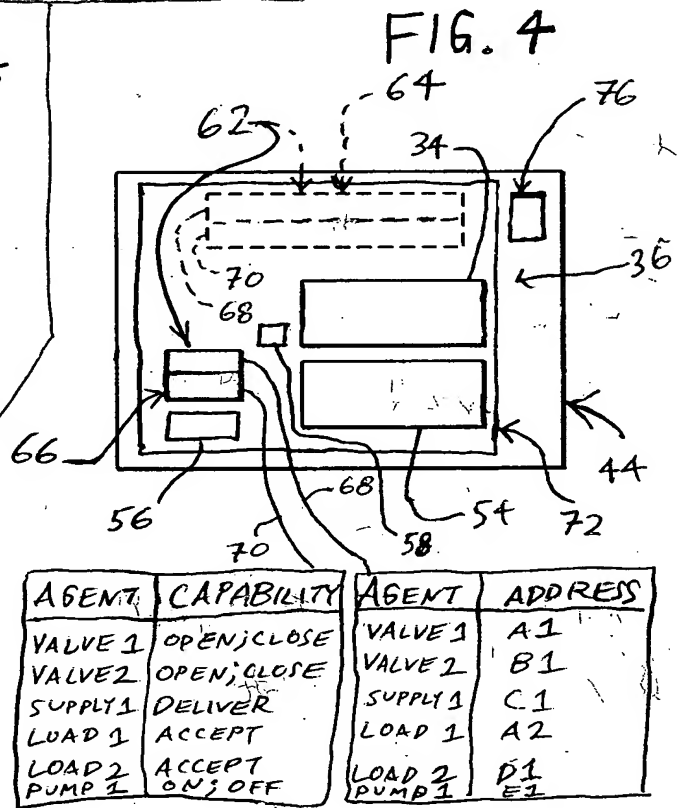 FIG. 4
62
64
76
34
36
70
68
66
56
70
68
58
54
72
44
AGENT CAPABILITY
VALVE 1 OPEN; CLOSE
VALVE 2 OPEN; CLOSE
SUPPLY 1 DELIVER
LOAD 1 ACCEPT
LOAD 2 ACCEPT
PUMP 1 ON; OFF
AGENT ADDRESS
VALVE 1 A1
VALVE 2 B1
SUPPLY 1 C1
LOAD 1 A2
LOAD 2 D1
PUMP 1 E1